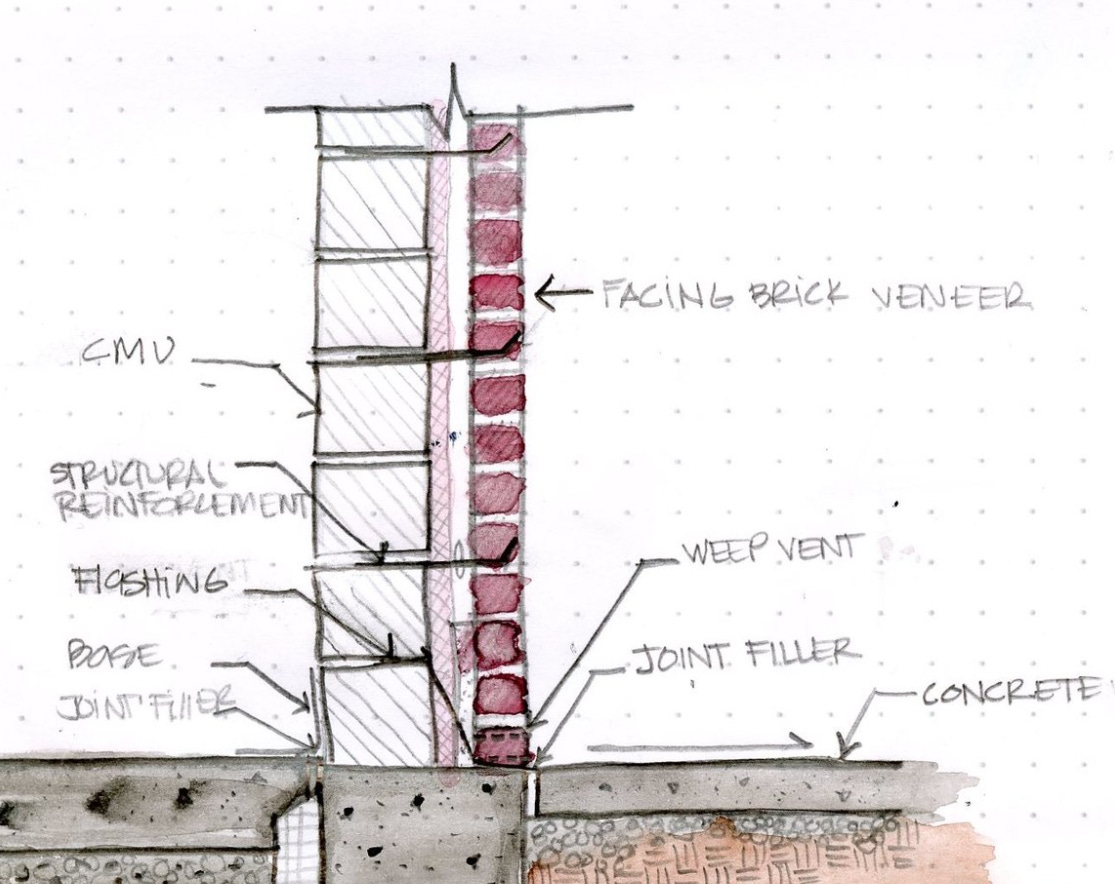 FACING BRICK VENEER
CMU
STRUCTURAL
REINFORCEMENT
FLASHING
WEEP VENT
BASE
JOINT FILLER
JOINT FILLER
CONCRETE